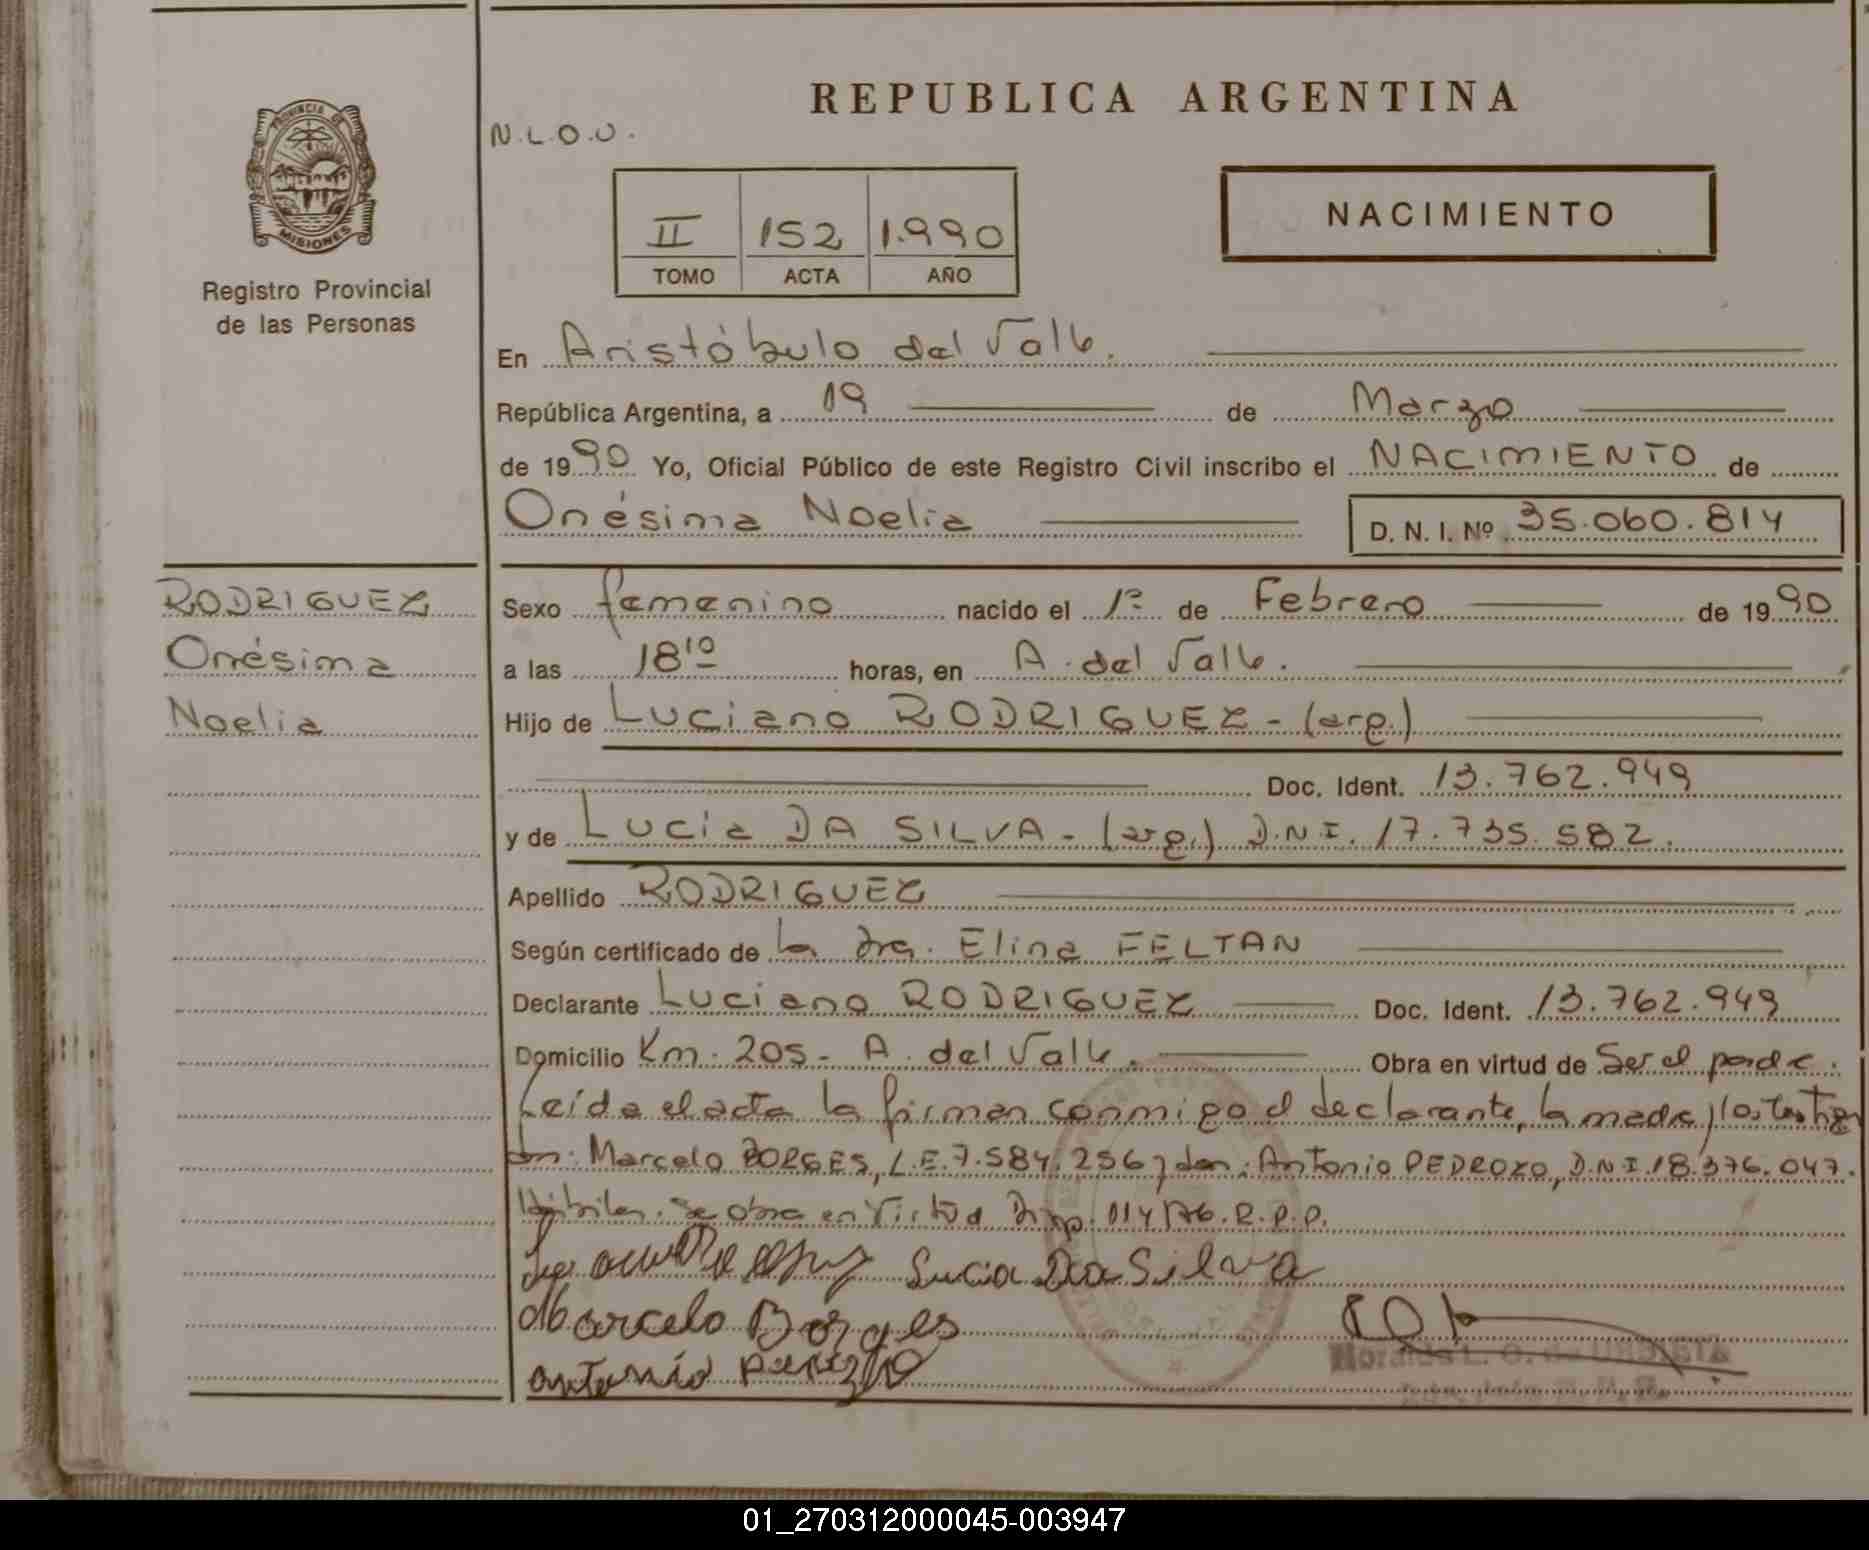 REPUBLICA ARGENTINA
N.L.O.U.
PROVINCIA DE MISIONES
Registro Provincial
de las Personas
II 152 1.990
TOMO ACTA AÑO
NACIMIENTO
En Aristóbulo del Valle.
República Argentina, a 19 de Marzo
de 1990 Yo, Oficial Público de este Registro Civil inscribo el NACIMIENTO de
Onésima Noelia D. N. I. Nº 35.060.814
RODRIGUEZ
Onésima
Noelia
Sexo femenino nacido el 1º de Febrero de 1990
a las 18¹⁰ horas, en A. del Valle.
Hijo de Luciano RODRIGUEZ - (arg.)
Doc. Ident. 13.762.949
y de Lucia DA SILVA - (arg.) D.N.I. 17.735.582.
Apellido RODRIGUEZ
Según certificado de la Dra. Elina FELTAN
Declarante Luciano RODRIGUEZ Doc. Ident. 13.762.949
Domicilio Km. 205 - A. del Valle. Obra en virtud de Ser el padre.
Leída el acta la firman conmigo el declarante, la madre y los testigos
don: Marcelo BORGES, L.E. 7.584.256 y don: Antonio PEDROZO, D.N.I. 18.376.047.
Hábiles. Se obra en Virtud Disp. 014/76. R.P.P.
Lucia Da Silva
Marcelo Borges
antonio
L. O. de URBIETA
01_270312000045-003947